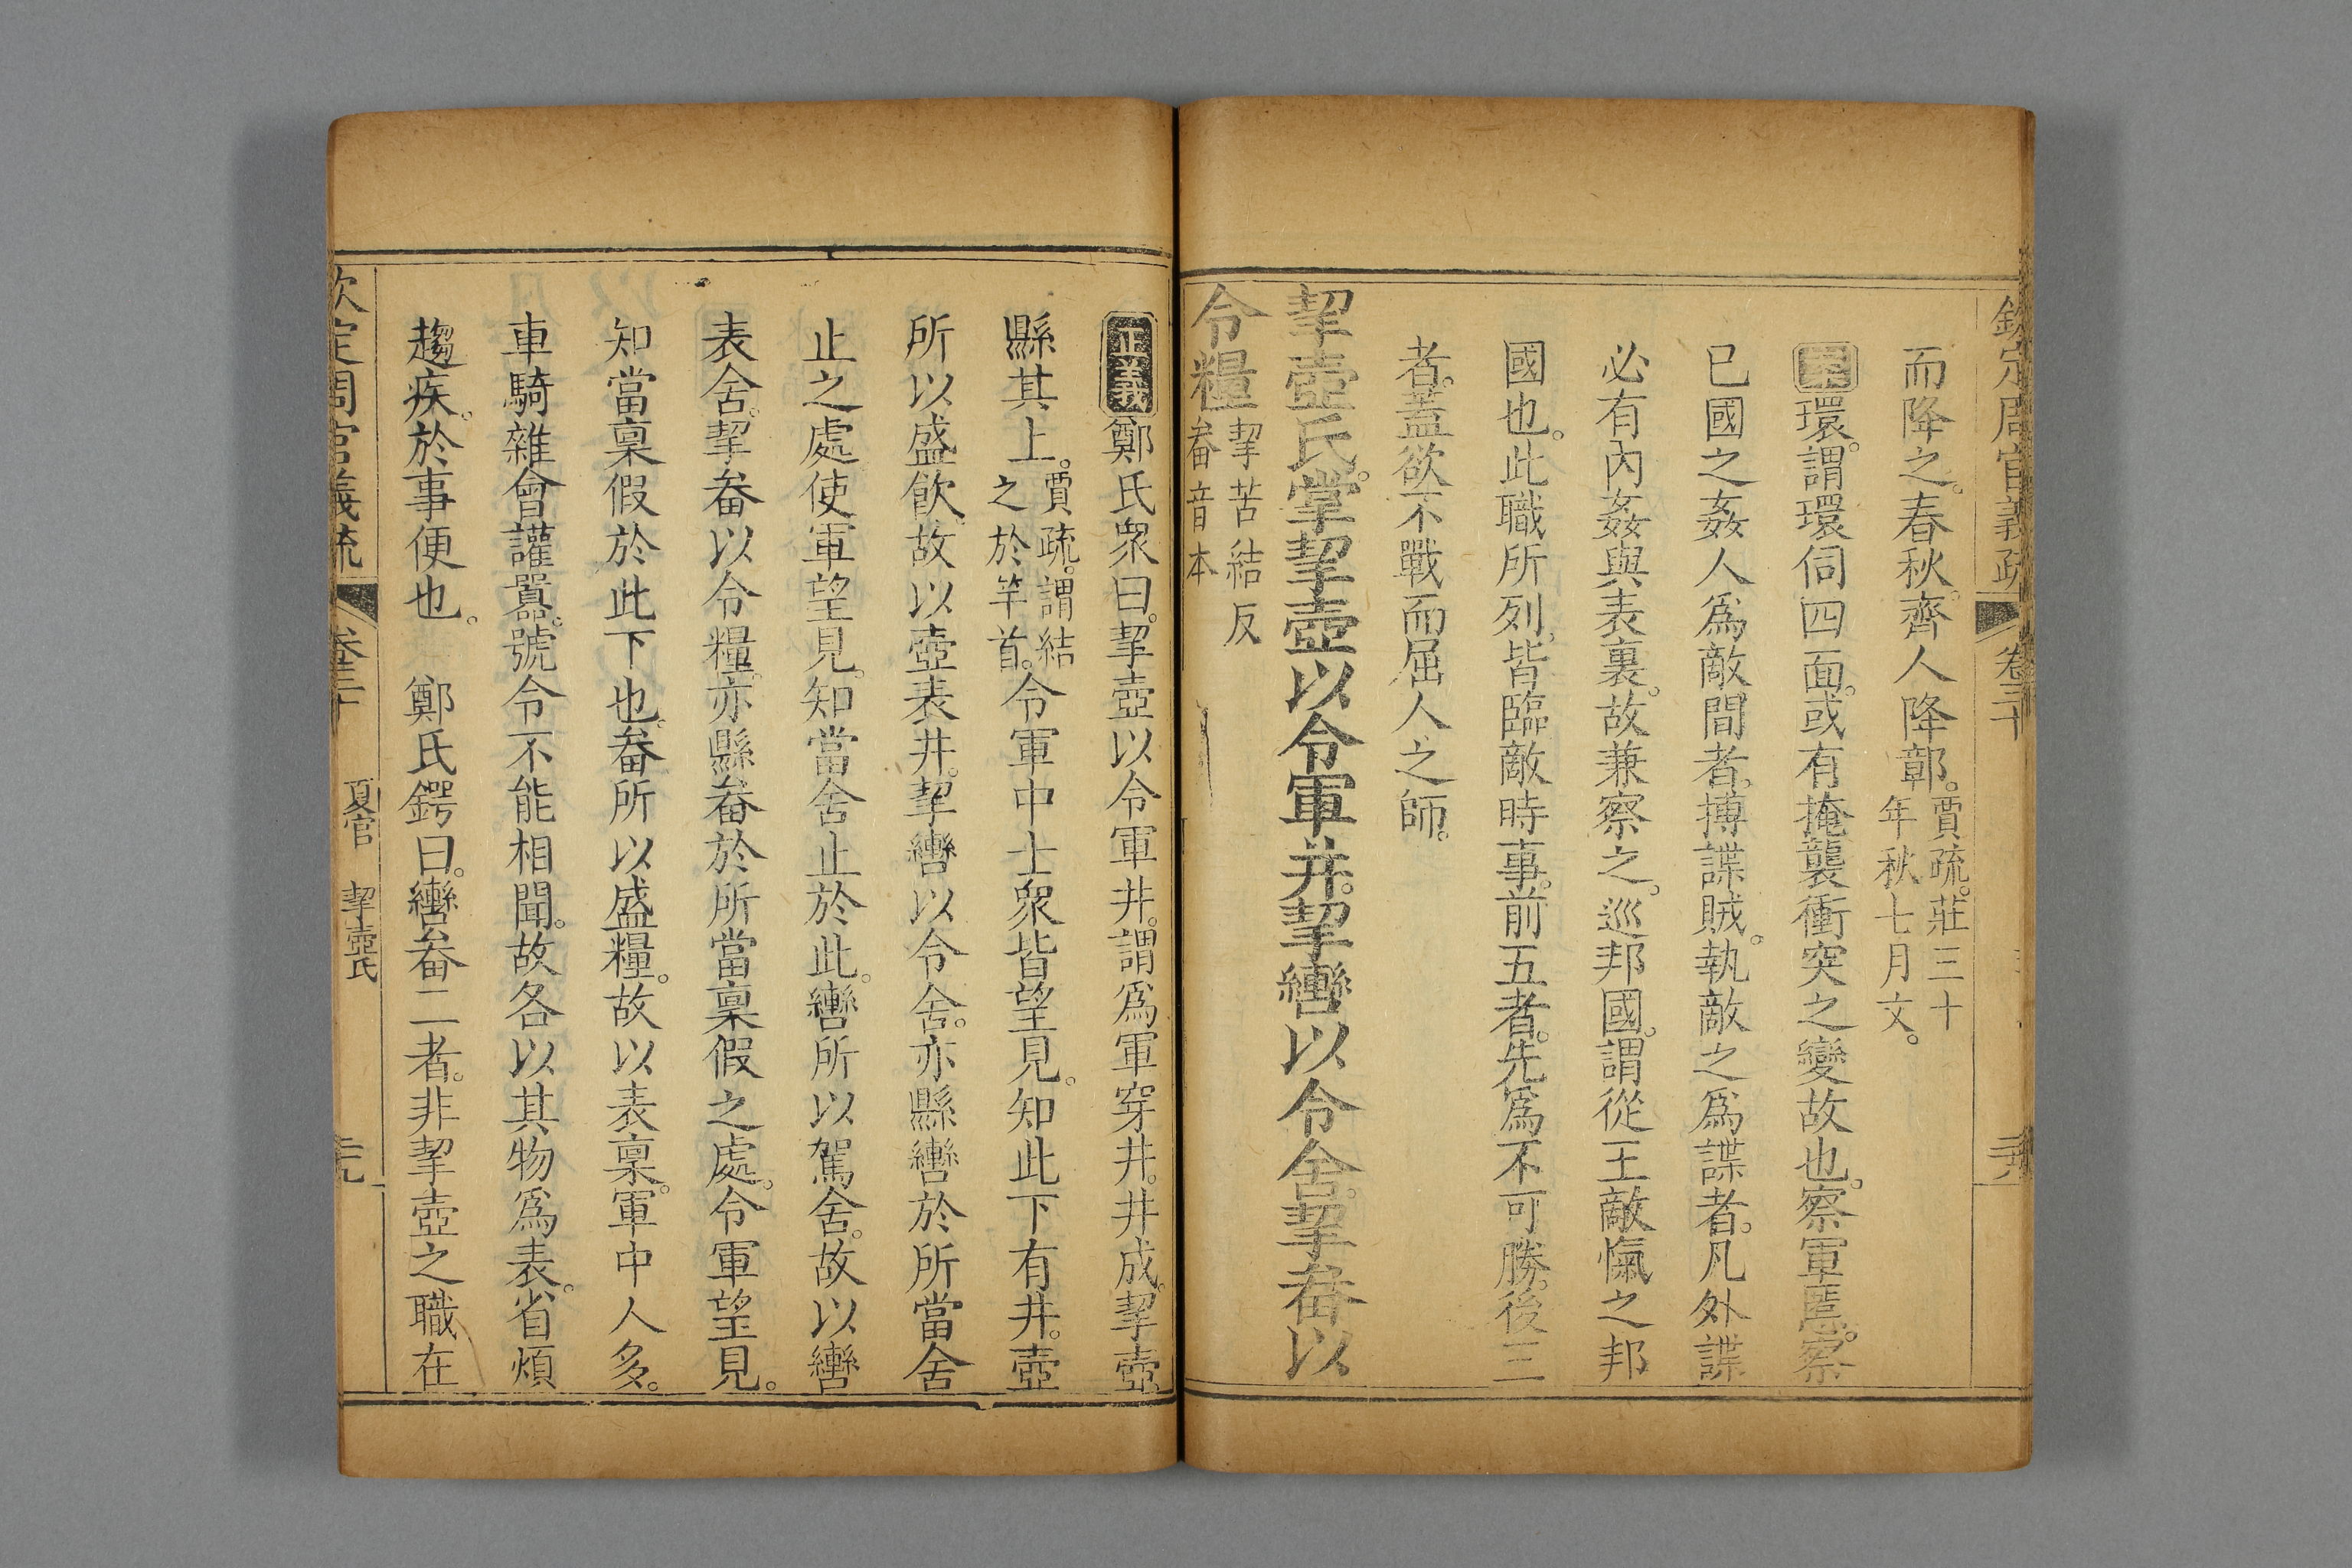 欽定周官義疏 卷三十
而降之。春秋。齊人降鄣。賈疏。莊三十年秋七月文。
環。謂環伺四面。或有掩襲衝突之變故也。察軍慝。察
已國之姦人爲敵間者。搏諜賊。執敵之爲諜者。凡外諜
必有內姦與表裏。故兼察之。巡邦國。謂從王敵愾之邦
國也。此職所列。皆臨敵時事。前五者。先爲不可勝。後三
者。蓋欲不戰而屈人之師。
挈壺氏。掌挈壺以令軍井。挈轡以令舍。挈畚以
令糧挈苦結反畚音本
正義鄭氏衆曰。挈壺以令軍井。謂爲軍穿井。井成。挈壺
縣其上。賈疏。謂結之於竿首。令軍中士衆皆望見。知此下有井。壺
所以盛飲。故以壺表井。挈轡以令舍。亦縣轡於所當舍
止之處。使軍望見。知當舍止於此。轡所以駕舍。故以轡
表舍。挈畚以令糧。亦縣畚於所當稟假之處。令軍望見。
知當稟假於此下也。畚所以盛糧。故以表稟。軍中人多。
車騎雜會讙囂。號令不能相聞。故各以其物爲表。省煩
趨疾。於事便也。 鄭氏鍔曰。轡畚二者。非挈壺之職在
欽定周官義疏 卷三十 夏官 挈壺氏 元